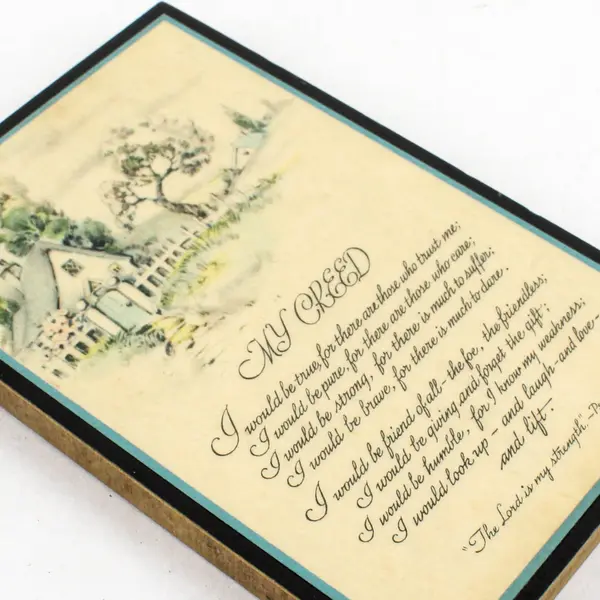 MY CREED
I would be true, for there are those who trust me;
I would be pure, for there are those who care;
I would be strong, for there is much to suffer;
I would be brave, for there is much to dare.
I would be friend of all - the foe, the friendless;
I would be giving, and forget the gift;
I would be humble, for I know my weakness;
I would look up - and laugh - and love -
and lift.
"The Lord is my strength." -